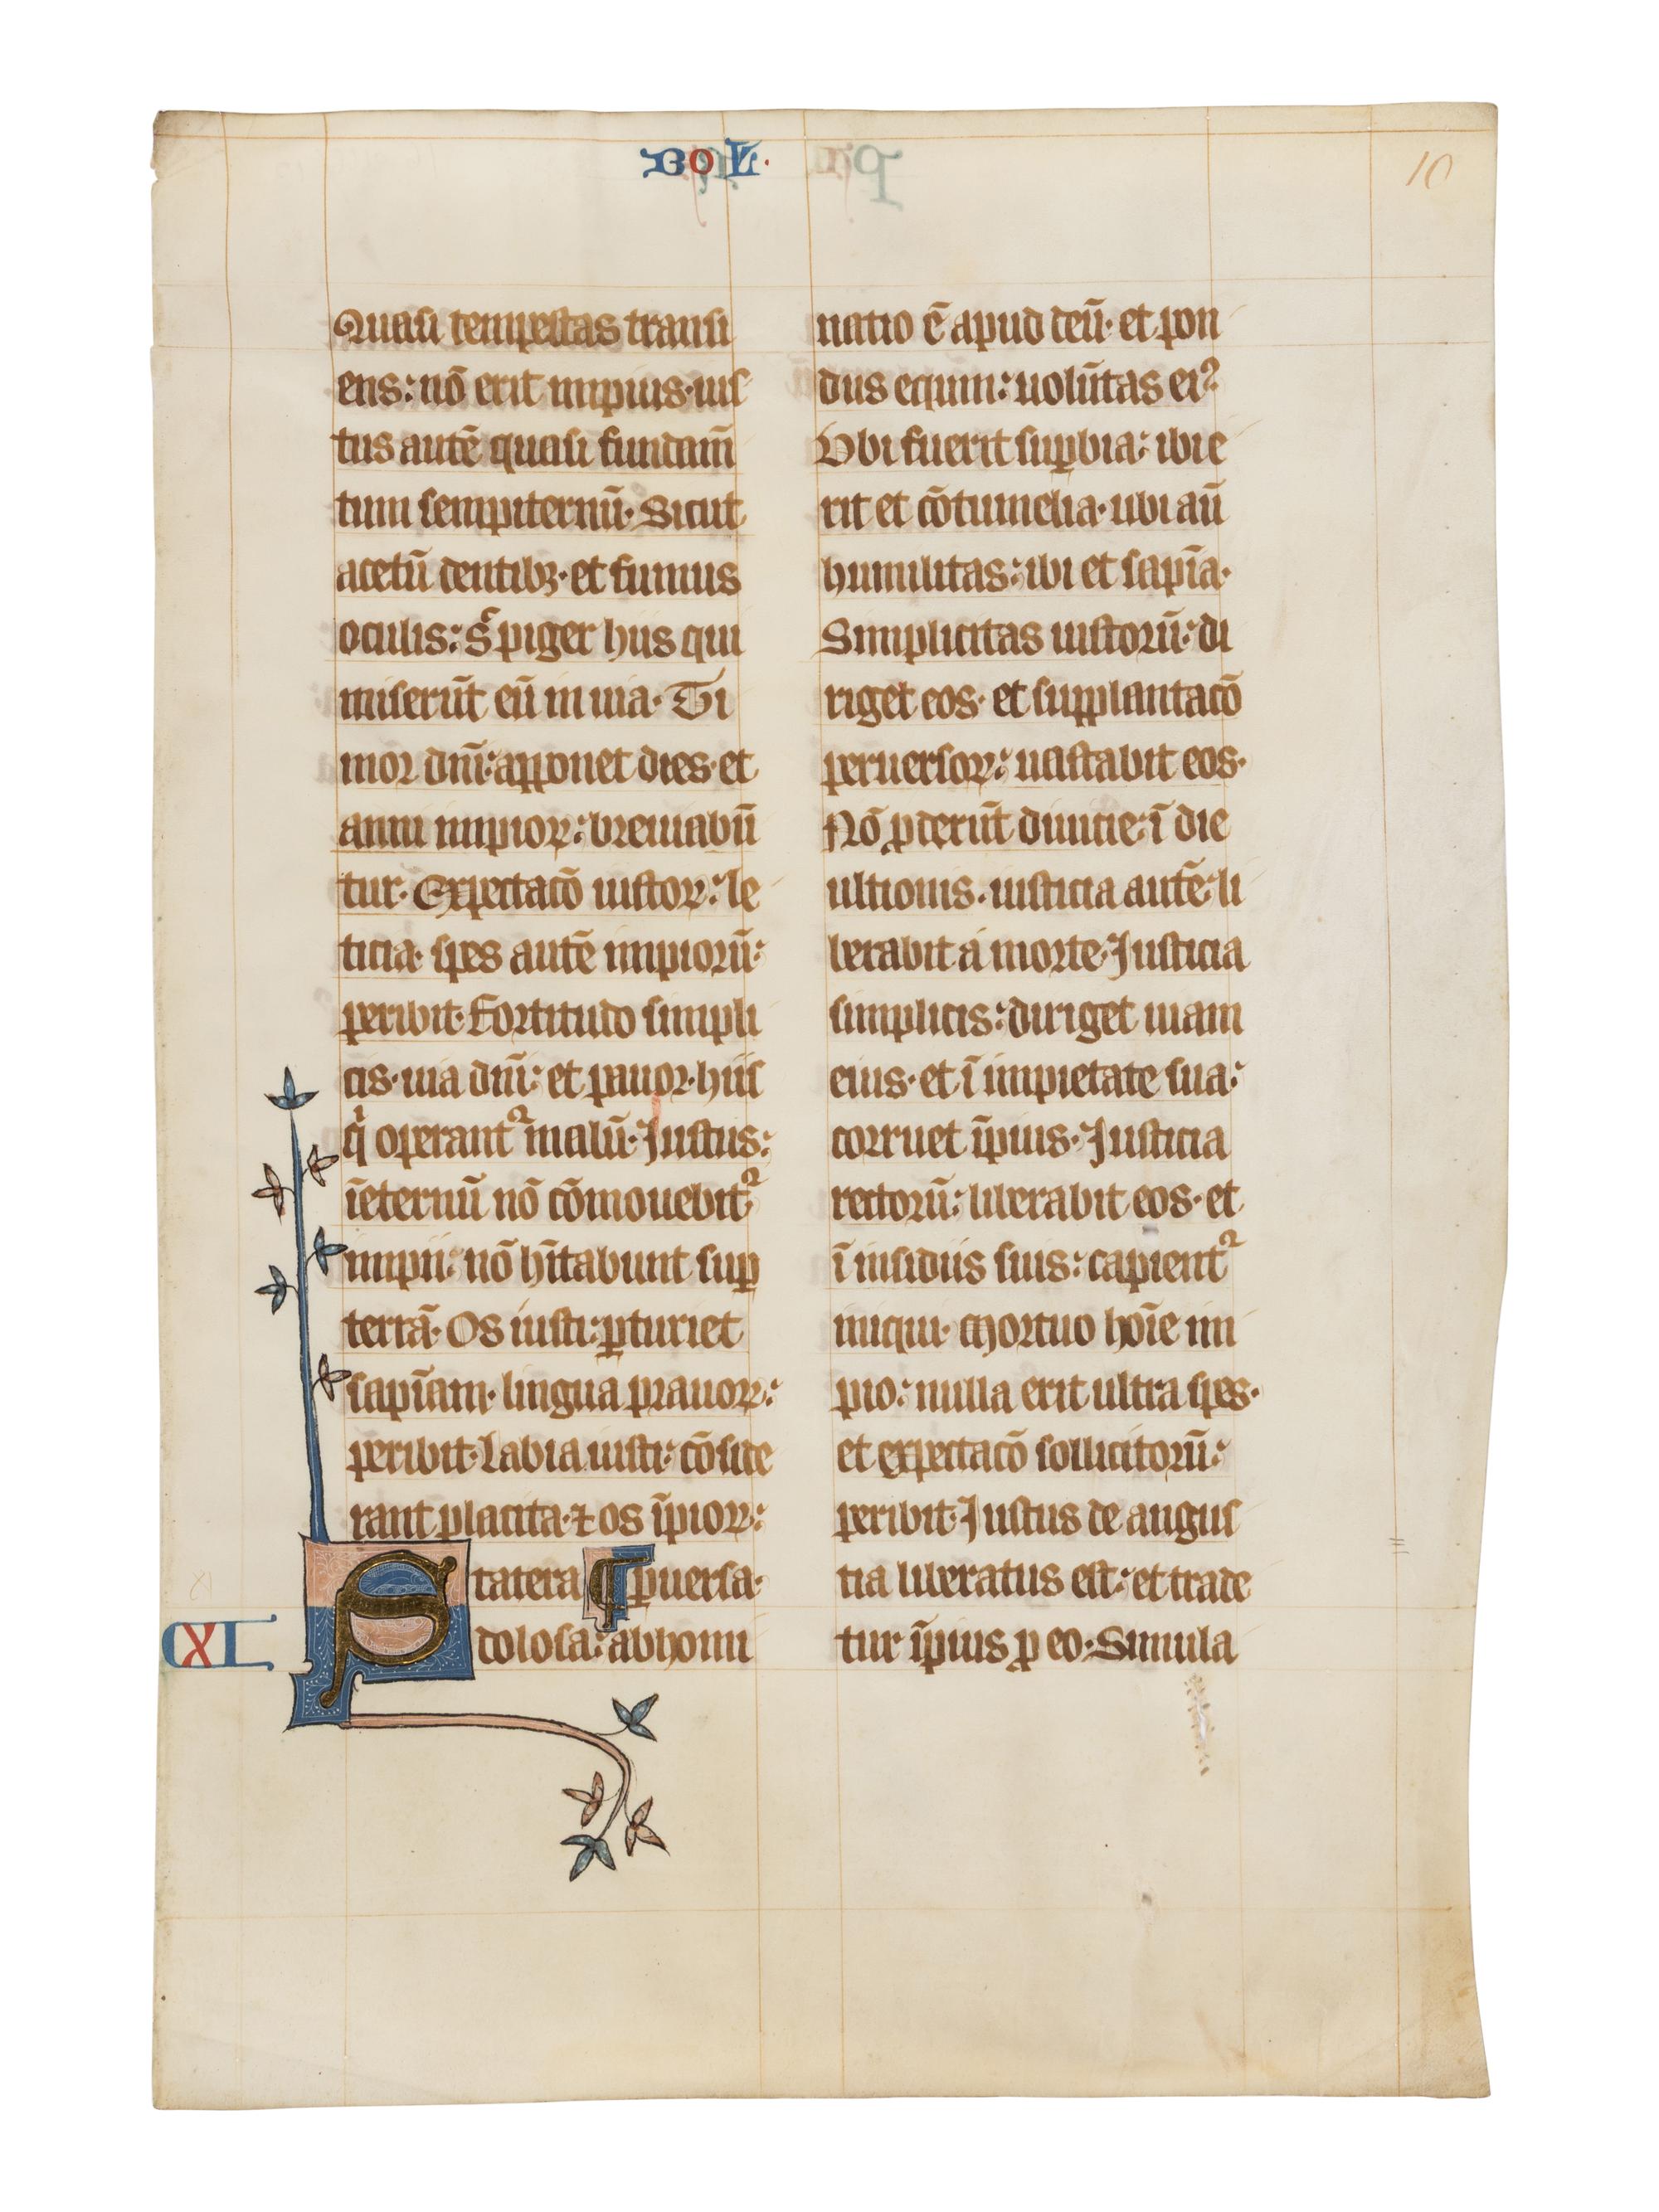 BOL·
10
Quasi tempestas transi
ens: nō erit impius· ius
tus autē quasi fundam̄
tum sempiternū· Sicut
acetū dentibꝫ· et fumus
oculis: sͨ piger hiis qui
miserūt eū in uia· Ti
mor dn̄i: apponet dies· et
anni impioꝝ: breuiabū
tur· Expectacō iustoꝝ: le
ticia· spes autē impiorū:
peribit· Fortitudo simpli
cis· uia dn̄i: et pauor· hiis
qͥ operantᷣ malū· Justus:
īeternū nō cōmouebitᷣ
impii: nō hītabunt suꝑ
terrā· Os iusti: ꝑturiet
sapīam· lingua prauoꝝ:
peribit· Labia iusti: cōside
rant placita· ⁊ os īpioꝝ:
ꝑuersa·
XI
Statera
dolosa: abhomi
natio ē apud deū· et pon
dus equm: uolūtas eiꝰ
Vbi fuerit suꝑbia: ibi e
rit et cōtumelia· ubi aū
humilitas: ibi et sapīa·
Simplicitas iustorū: di
riget eos· et supplantacō
peruersoꝝ: uastabit eos·
Nō ꝓderūt diuicie: ī die
ultionis· iusticia autē: li
berabit a morte· Justicia
simplicis: diriget uiam
eius· et ī impietate sua:
corruet īpius· Justicia
rectorū: liberabit eos· et
ī insidiis suis: capientᷣ
iniqui· Mortuo hoīe im
pio: nulla erit ultra spes·
et expectacō sollicitorū:
peribit· Justus de angus
tia liberatus est: et trade
tur īpius ꝓ eo· Simula